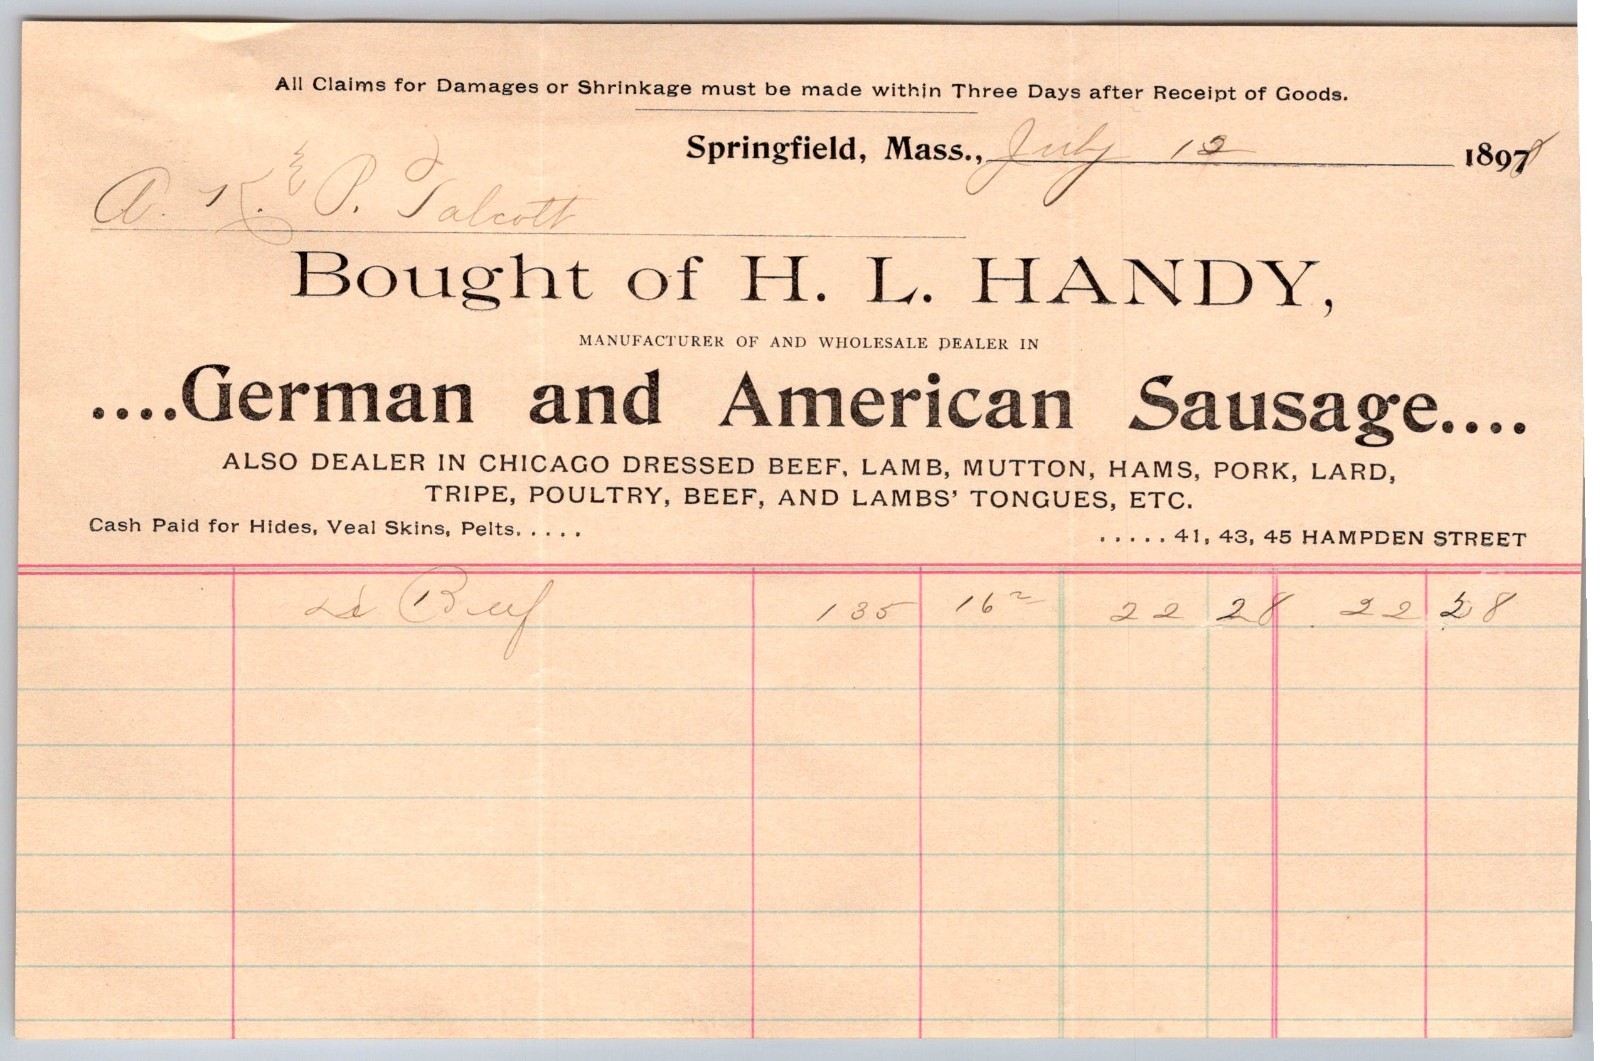 All Claims for Damages or Shrinkage must be made within Three Days after Receipt of Goods.
Springfield, Mass., July 12 1898
A. K. & P. Talcott
Bought of H. L. HANDY,
MANUFACTURER OF AND WHOLESALE DEALER IN
....German and American Sausage....
ALSO DEALER IN CHICAGO DRESSED BEEF, LAMB, MUTTON, HAMS, PORK, LARD,
TRIPE, POULTRY, BEEF, AND LAMBS' TONGUES, ETC.
Cash Paid for Hides, Veal Skins, Pelts..... .....41, 43, 45 HAMPDEN STREET
Beef 135 22 28 22 28